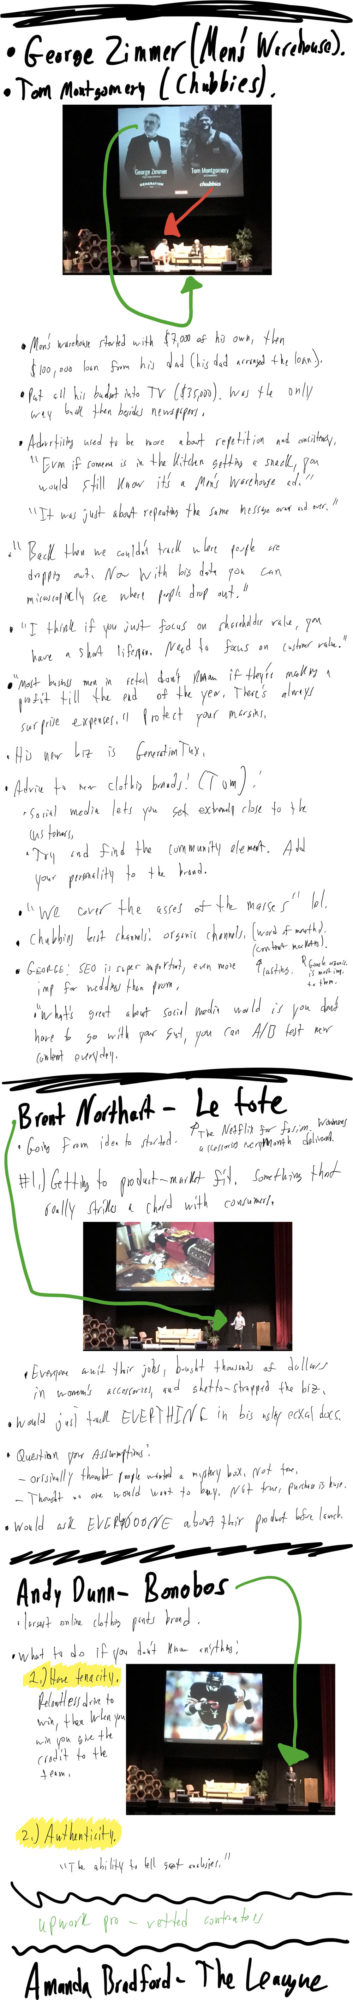 • George Zimmer (Men's Warehouse).
• Tom Montgomery (Chubbies).
George Zimmer
Tom Montgomery
GENERATION
chubbies
• Men's warehouse started with $7,000 of his own, then
$100,000 loan from his dad (his dad arranged the loan).
• Put all his budget into TV ($35,000). Was the only
way back then besides newspapers.
• Advertising used to be more about repetition and consistency.
"Even if someone is in the kitchen getting a snack, you
would still know it's a Men's Warehouse ad."
"It was just about repeating the same message over and over."
• "Back then we couldn't track where people are
dropping out. Now with big data you can
microscopically see where people drop out."
• "I think if you just focus on shareholder value, you
have a short lifespan. Need to focus on customer value."
• "Most business men in retail don't know if they're making a
profit till the end of the year. There's always
surprise expenses." Protect your margins.
• His new biz is GenerationTux.
• Advice to new clothing brands! (Tom):
• Social media lets you get extremely close to the
customers.
• Try and find the community element. Add
your personality to the brand.
• "We cover the asses of the masses" lol.
• Chubbies best channels: organic channels. (word of mouth).
(content marketing).
• GEORGE: SEO is super important, even more
imp for weddings than prom.
↑ lasting.
↑ Google organic
is most imp.
to them.
• "What's great about social media world is you don't
have to go with your gut, you can A/B test new
content everyday.
Brent Northart - Le tote
• Going from idea to started.
↑ The Netflix for fashion. Womens
accessories every month delivered.
#1.) Getting to product-market fit. Something that
really strikes a chord with consumers.
• Everyone quit their jobs, bought thousands of dollars
in women's accessories, and ghetto-strapped the biz.
• Would just track EVERYTHING in big ugly excel docs.
• Question your Assumptions:
- originally thought people wanted a mystery box. Not true.
- Thought no one would want to buy. Not true, purchase is huge.
• Would ask EVERYOOONE about their product before launch.
Andy Dunn - Bonobos
• largest online clothing pants brand.
• What to do if you don't know anything:
1.) Have tenacity.
Relentless drive to
win, then when you
win you give the
credit to the
team.
2.) Authenticity.
"The ability to tell great
upwork pro - vetted contractors
Amanda Bradford - The League